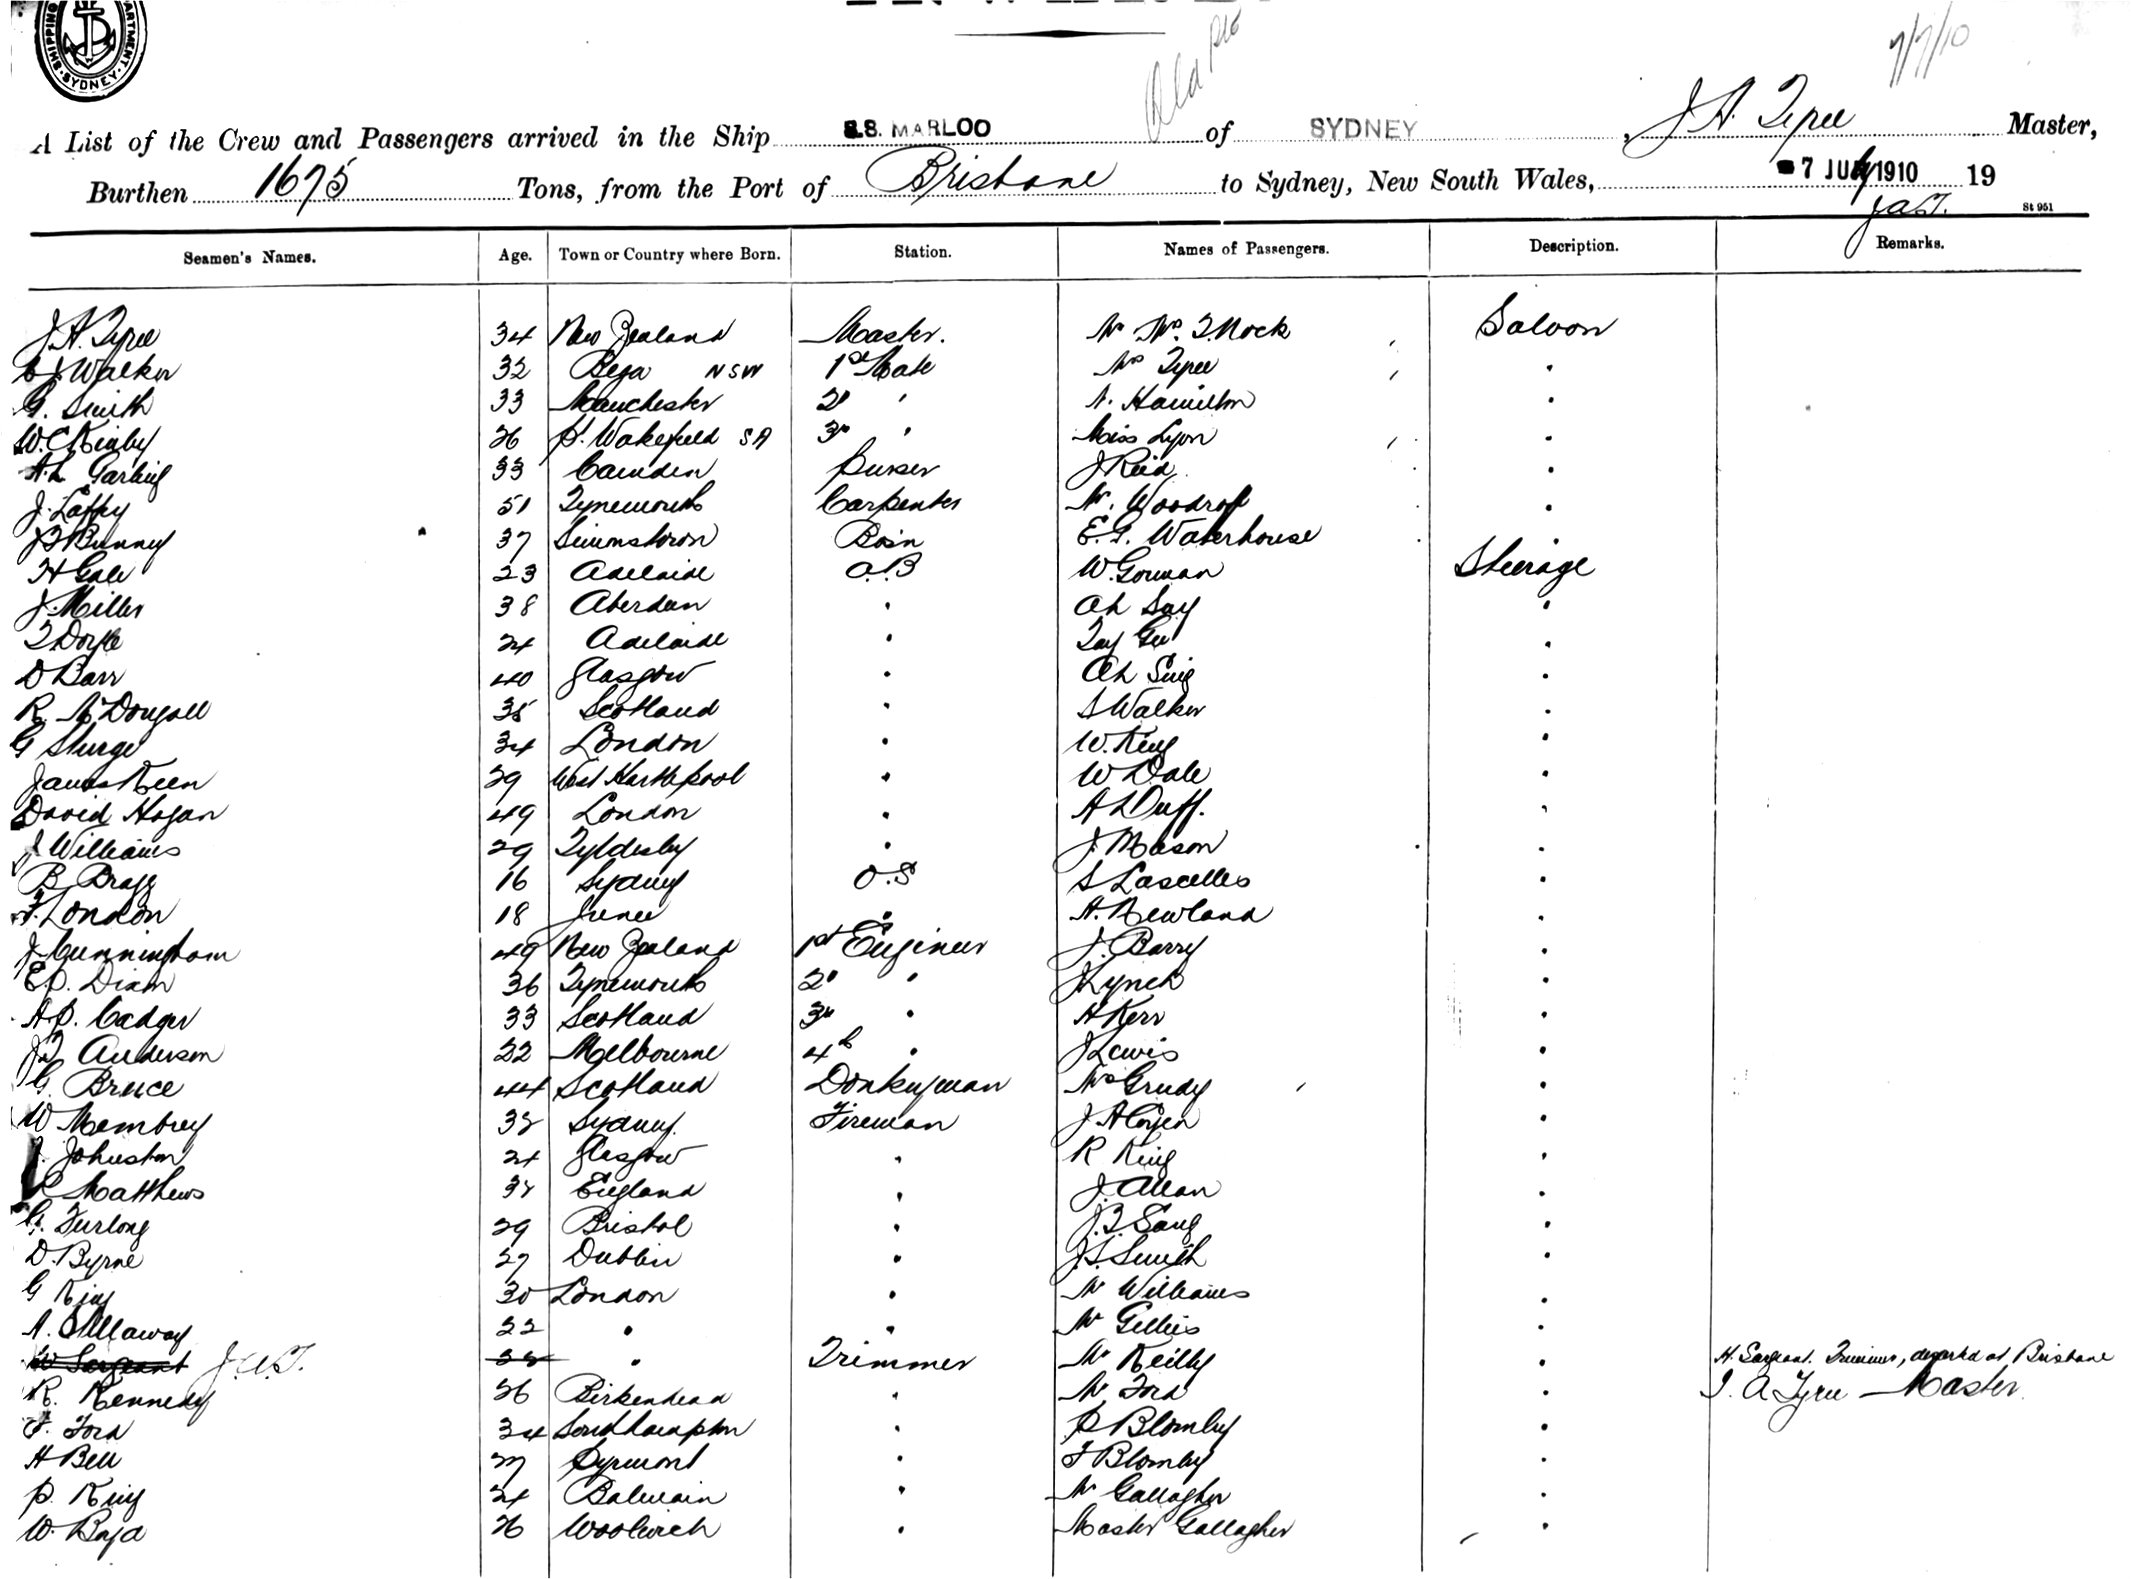 SHIPPING DEPARTMENT. SYDNEY.
7/7/10
A List of the Crew and Passengers arrived in the Ship S.S. MARLOO of SYDNEY, J A. Tyree Master,
Burthen 1675 Tons, from the Port of Brisbane to Sydney, New South Wales, 7 JULY 1910 19
JaT. St 951
Seamen's Names. Age. Town or Country where Born. Station. Names of Passengers. Description. Remarks.
J A. Tyree 34 New Zealand Master. Mr Mrs T. Nock Saloon
C J Walker 32 Bega NSW 1st Mate Mrs Tyree "
G. Smith 33 Manchester 2d " A. Hamilton "
W. C Kirby 26 Pt. Wakefield SA 3rd " Miss Lyon "
A. L 33 Camden Purser J Reid "
J. Laffey 51 Tynemouth Carpenter Mr. Woodroff "
Bunny 37 Simonstown Bosn E. G. Waterhouse "
H Gale 23 Adelaide A.B W. Gorman Steerage
J. Miller 38 Aberdeen " Ah Say "
T Doyle 24 Adelaide " Tay Gee "
D Barr 40 Glasgow " Ah Sing "
R McDougall 35 Scotland " S Walker "
G Sturge 34 London " W. King "
James Keen 29 West Hartlepool " W Dale "
David Hogan 49 London " A L Duff. "
J Williams 29 Tyldesley " J. Mason "
B Bragg 16 Sydney O.S S Lascelles "
F. London 18 Junee " A. Newland "
J Cunningham 49 New Zealand 1st Engineer J. Barry "
E P. Dixon 36 Tynemouth 2d " J Lynch "
A. P. Cadger 33 Scotland 3rd " H Kerr "
J T Anderson 22 Melbourne 4th " J Lewis "
G. Bruce 44 Scotland Donkeyman Mrs Grudy "
W Membrey 32 Sydney. Fireman J. A "
J. Johnston 24 Glasgow " R King "
Matthews 32 England " J. Allan "
G. Furlong 29 Bristol " J. T. Sang "
D. Byrne 27 Dublin " J. S. Smith "
G King 30 London " Mr Williams "
A. Allaway 22 " " Mr Gillies "
W Sargeant J.A.T. 32 " Trimmer Mr Reilly " H. Sargeant. Trimmer, deserted at Brisbane
R. Kennedy 26 Birkenhead " Mr Ford " J. A Tyree — Master.
F. Ford 34 Southampton " P Blomley "
H Bell 27 Pyrmont " F Blomley "
P. King 24 Balmain " Mr Gallagher "
W. Boyd 26 Woolwich " Master Gallagher "